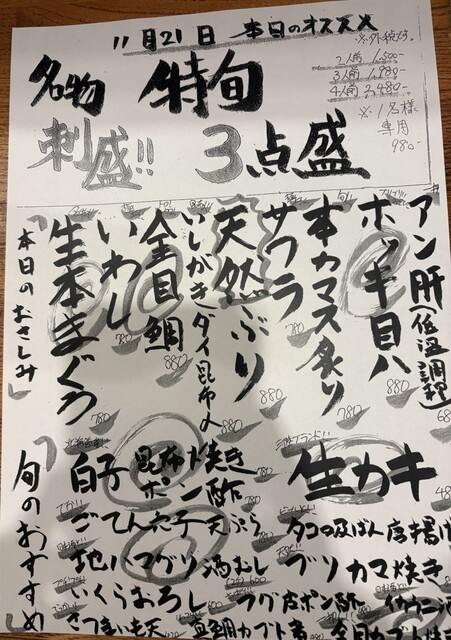 11月21日 本日のオススメ
※外税対。
2人前 1,500-
3人前 1,980-
4人前 2,480-
※1名様専用
980-
名物 特旬
刺盛!! 3点盛
アン肝(低温調理)
ホッキ貝 880
本カマス炙り 780
サワラ 780
天然ぶり 880
いしがきダイ昆布〆 880
金目鯛 880
いわし 780
生本まぐろ 780
本日のおさしみ
旬のおすすめ
生カキ
白子 昆布焼き ポン酢
ごてん穴子天ぷら
タコの及ばん唐揚げ
地ハマグリ酒むし
ブリカマ焼き
いくらおろし
フグ皮ポン酢
さつまいも天
真鯛カブト煮